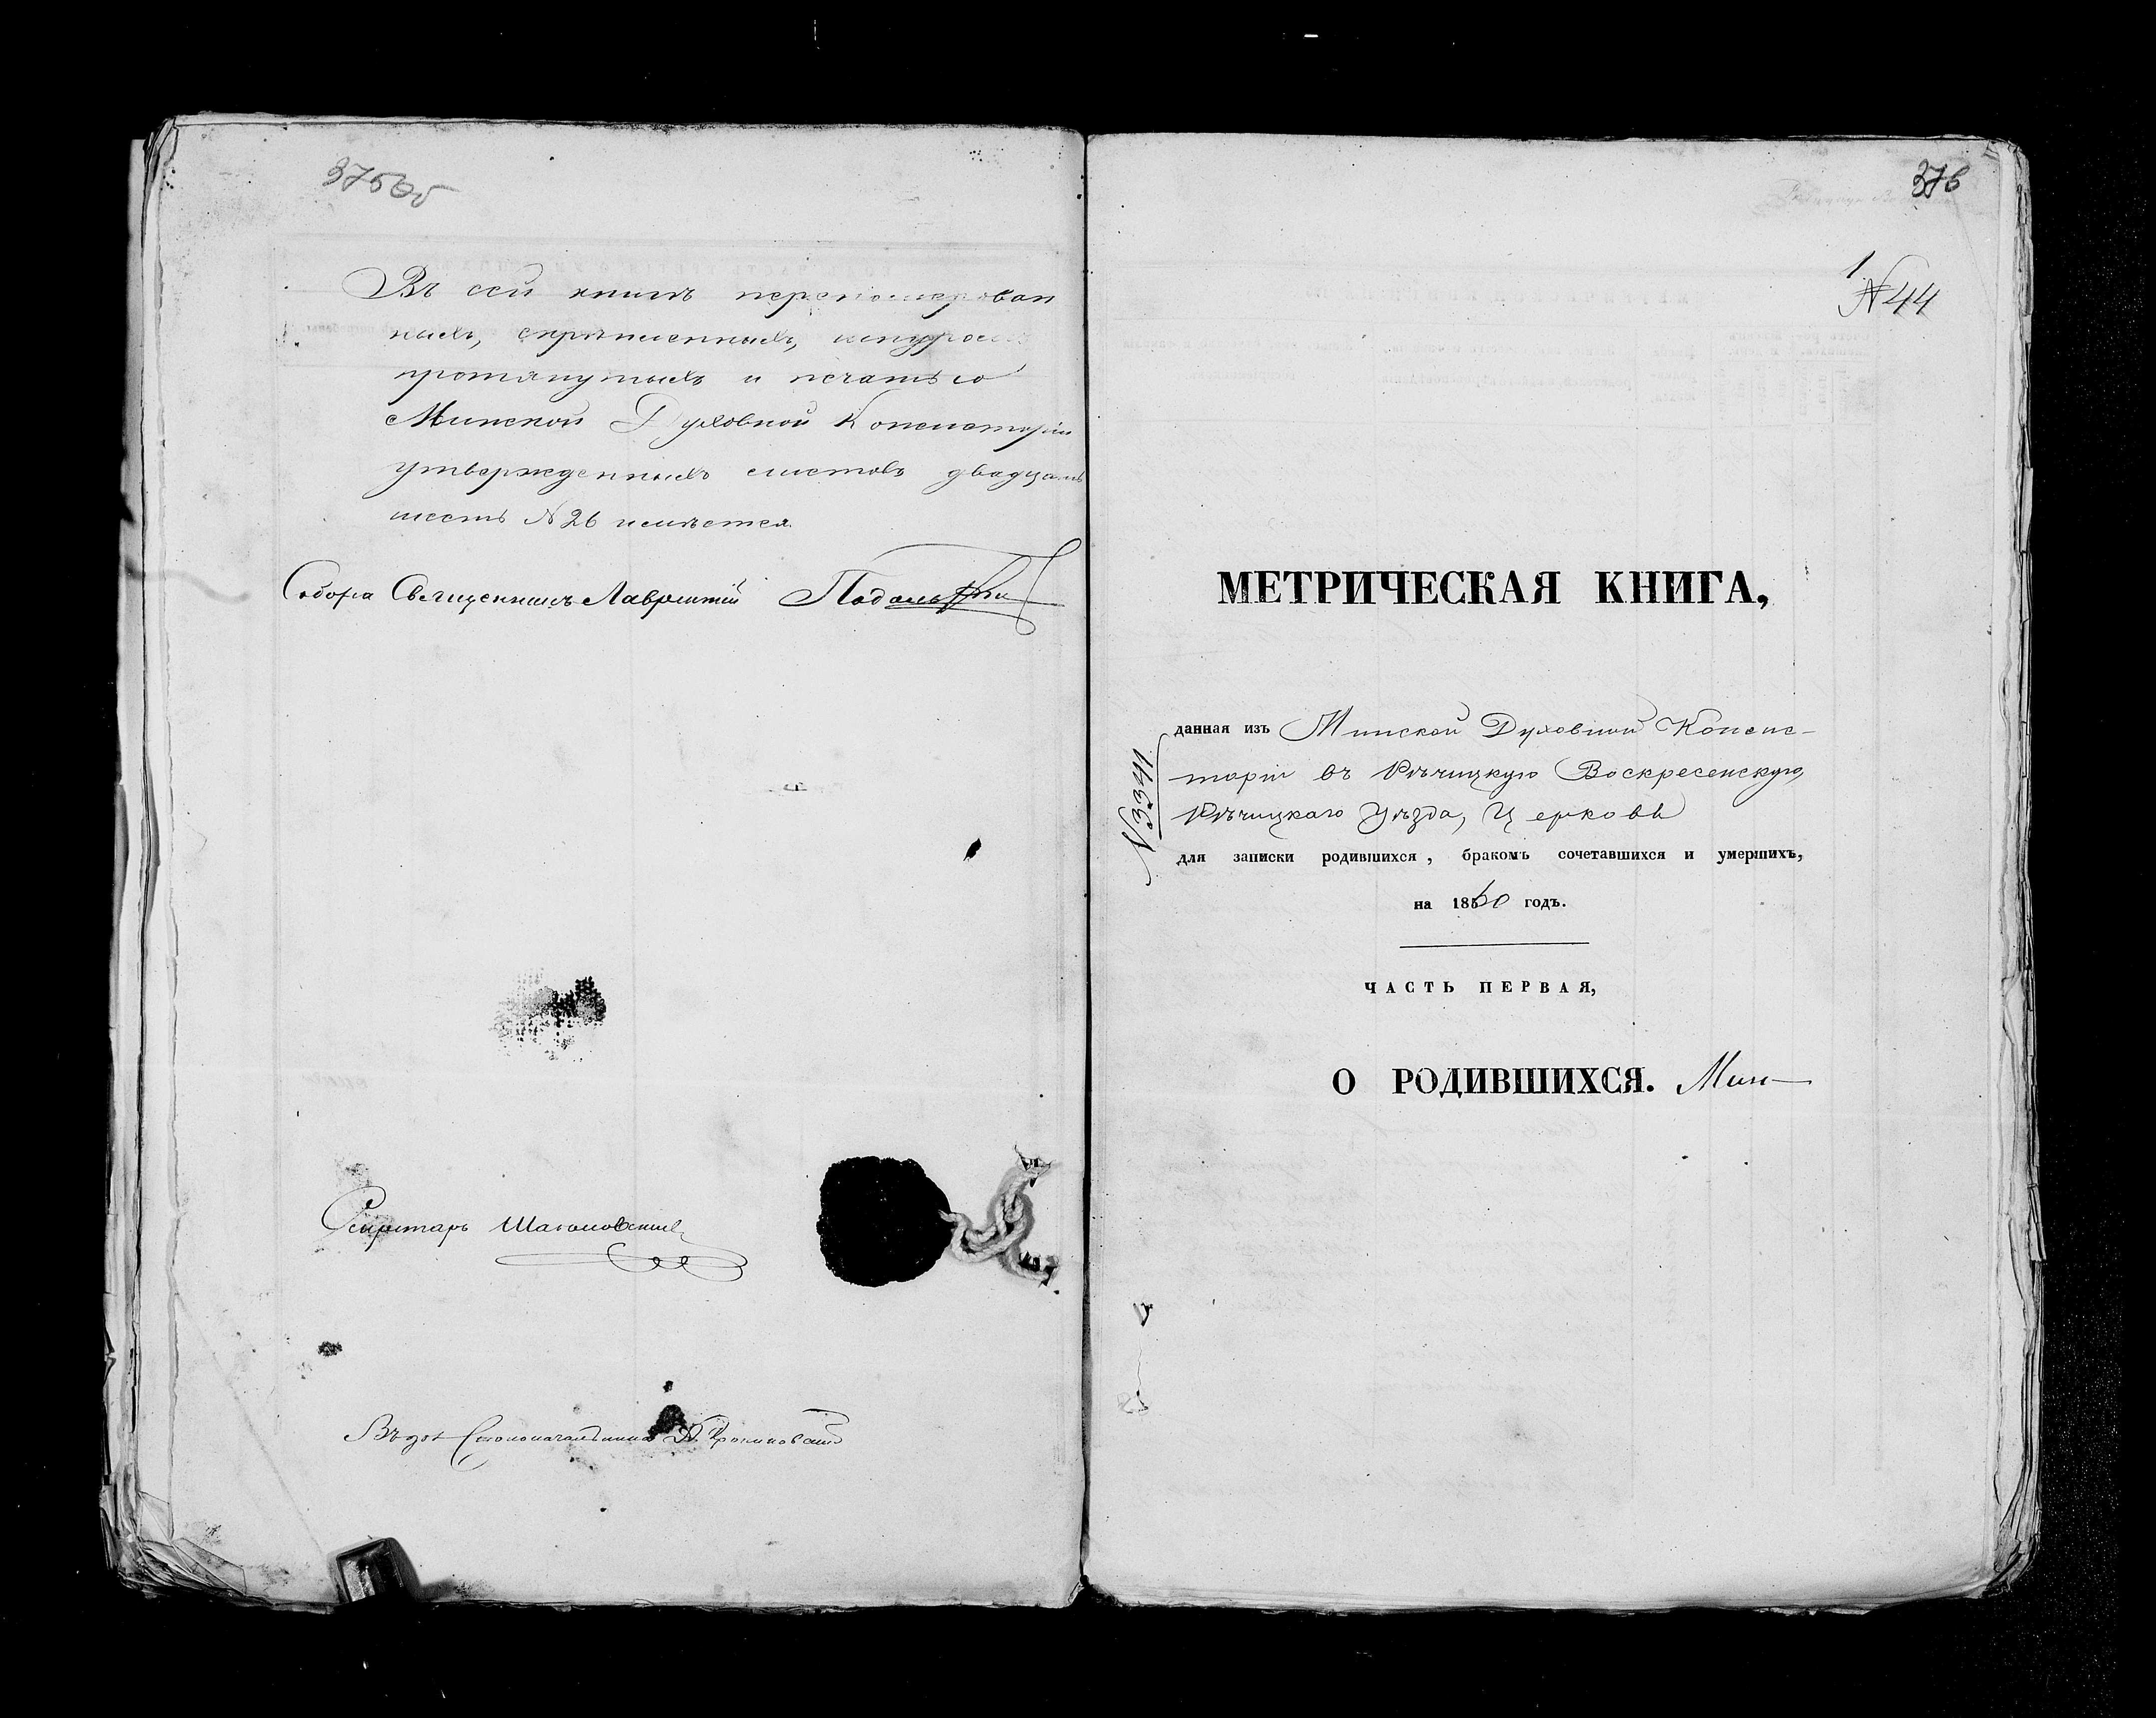 375об
Въ сей книгѣ перенумерован
ныхъ, скрѣпленныхъ, шнуромъ
протянутыхъ и печатью
Минской Духовной Консисторіи
утвержденныхъ листовъ двадцать
шесть №26 имѣется.
Собора Священникъ Лаврентій
Секретарь
Въ дол. Столоначальника
376
1
№44
МЕТРИЧЕСКАЯ КНИГА,
№3341
данная изъ Минской Духовной Консис-
торіи въ Рѣчицкую Воскресенскую,
Рѣчицкаго Уѣзда, Церковь
для записки родившихся, бракомъ сочетавшихся и умершихъ,
на 1860 годъ.
ЧАСТЬ ПЕРВАЯ,
О РОДИВШИХСЯ. Мин-